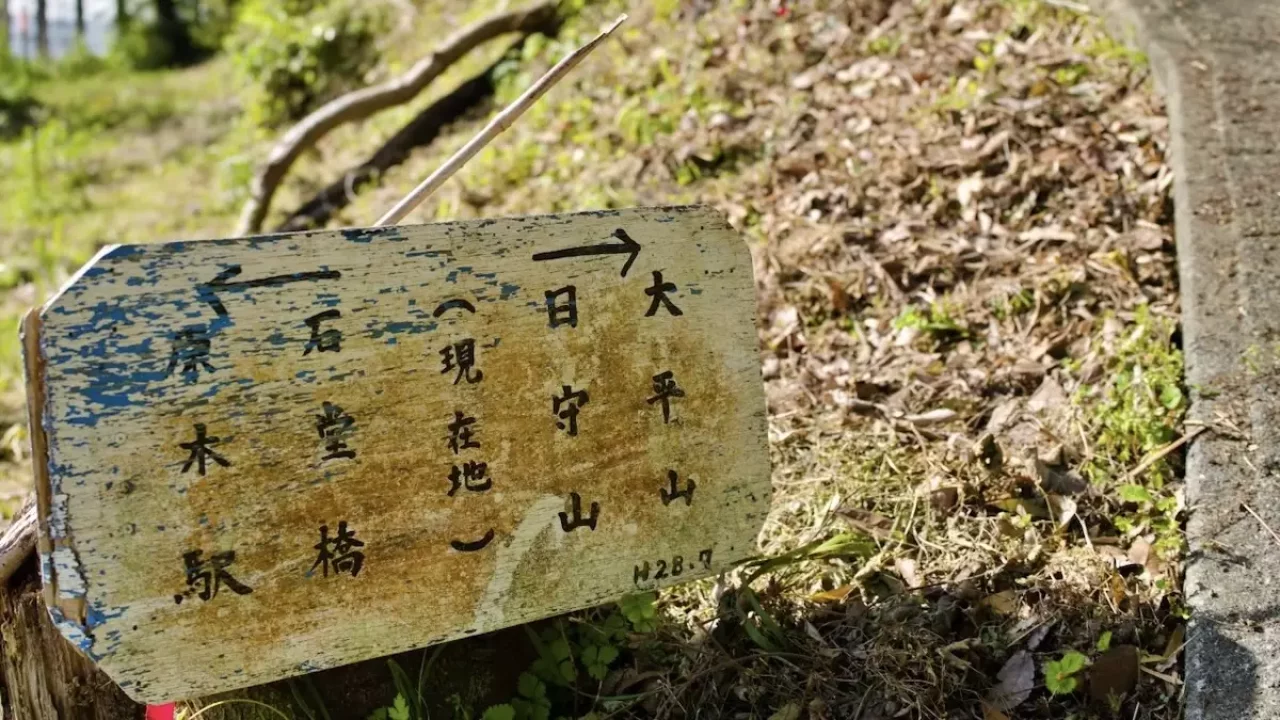 →
大平山
日守山
（現在地）
←
石堂橋
原木駅
H28.7